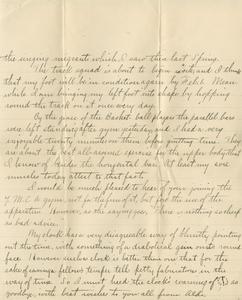 the singing migrants which I saw this last Spring.
The track squad is about to begin work, and I think
that my foot will be in condition again by Feb. 1st. Mean
while I am bringing my left foot into shape by hopping
round the track on it once every day.
By the grace of the Basket ball players the parallel bars
were left standing after gym yesterday and I had a very
enjoyable twenty minutes before fitting time. They
are about the best all-around exercise for the upper body that
I know of besides the horizontal bar. At least my sore
muscles today attest to that fact.
I would be much pleased to hear of your joining the
Y.M.C.A. gym, not for the fun of it, but for the use of the
apparatus. However, as the saying goes, There is nothing so cheap
as bad advice.
My clock has a very disagreeable way of bluntly pointing
out the time, with something of a diabolical grin on its round
face. However mine clock is better than one that for the
sake of easing a fellow's temper tells petty falsehoods in the
way of time. So I must heed the clock's warning
goodbye, with best wishes to you all from Alda.